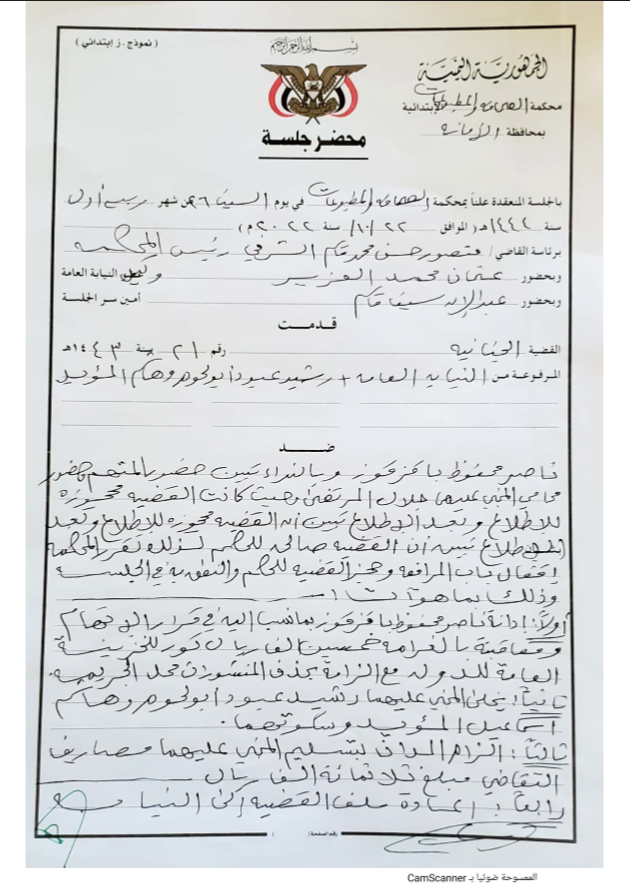 ( نموذج . ز إبتدائي )
بسم الله الرحمن الرحيم
الجمهورية اليمنية
محكمة الصحافه والمطبوعات الإبتدائية
بمحافظة الأمانه
محضر جلسة
بالجلسة المنعقدة علناً بمحكمة الصحافه والمطبوعات في يوم السبت ٢٦ من شهر ربيع أول
سنة ١٤٤٤هـ ( الموافق ٢٢ / ١٠ / سنة ٢٠٢٢م )
برئاسة القاضي / منصور حسن محمد قاسم الشرفي رئيس المحكمه
وبحضور عثمان محمد العزيز وكيل النيابة العامة
وبحضور عبدالإله سيف قاسم أمين سر الجلسة
قدمت
القضية الجنائيه رقم ٢١ لسنة ١٤٤٣هـ
المرفوعة من النيابه العامه + رشيد عبود أبو لحوم وهاكم المؤيد
ضد
ناصر محفوظ باقزقوز وبالنداء تبين حضور المتهم وحضور
محامي المجني عليهما خلال المرتفقين وحيث كانت القضيه محجوزه
للاطلاع وبعد الإطلاع تبين أن القضيه محجوزه للإطلاع وبعد
الاطلاع تبين أن القضيه صالحه للحكم لذلك تقرر المحكمه
إقفال باب المرافعه وحجز القضيه للحكم والنطق به في الجلسه
وذلك بما هو آت :
أولاً : إدانة ناصر محفوظ باقزقوز بما نسب اليه في قرار الإتهام
ومعاقبته بالغرامه خمسين الف ريال تورد للخزينة
العامة للدوله مع الزامه بحذف المنشورات محل الجريمه
ثانياً : يخلى المجني عليهما رشيد عبود أبو لحوم وهاكم
اسماعيل المؤيد وسكوتهما .
ثالثاً : الزام المدان بتسليم المجني عليهما مصاريف
التقاضي مبلغ ثلاثمائة الف ريال
رابعاً : إعادة ملف القضيه إلى النيابه
رقم الصفحة ( )
الممسوحة ضوئيا بـ CamScanner